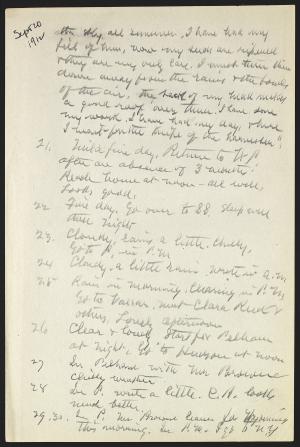 Sept 20
1912
the sky all summer, I have had my
fill of them, now my seeds are ripened
& they are my only care. I must turn them
down away from the rains & the birds
of the air; the back of my head makes
a good roof over them. I have done
my work. I have had my day, & now
I wait for the knife of the harvester."
21. Mild fine day. Return to W.P.
after an absence of 3 months.
Reach home at noon - all well,
Looks good.
22 Fine day. Go over to SS. sleep over
there night
23. Cloudy, rains a little. chilly,
Go to P. in P.M
24 Cloudy, a little rain. Write in A.M.
25 Rain in morning. Clearing in P.M.
Go to Vassar, meet Clara Reed &
others, Lovely afternoon
26 Clear & lovely. Start for Pelham
at night. Go to Hudson at noon
27 In Pelham with Mr Browne
chilly weather
28 In P. write a little. C.B. looks
much better.
29. 30. In P. Mr Browne leaves for Wyoming
this morning. In P.M. I go to N Y